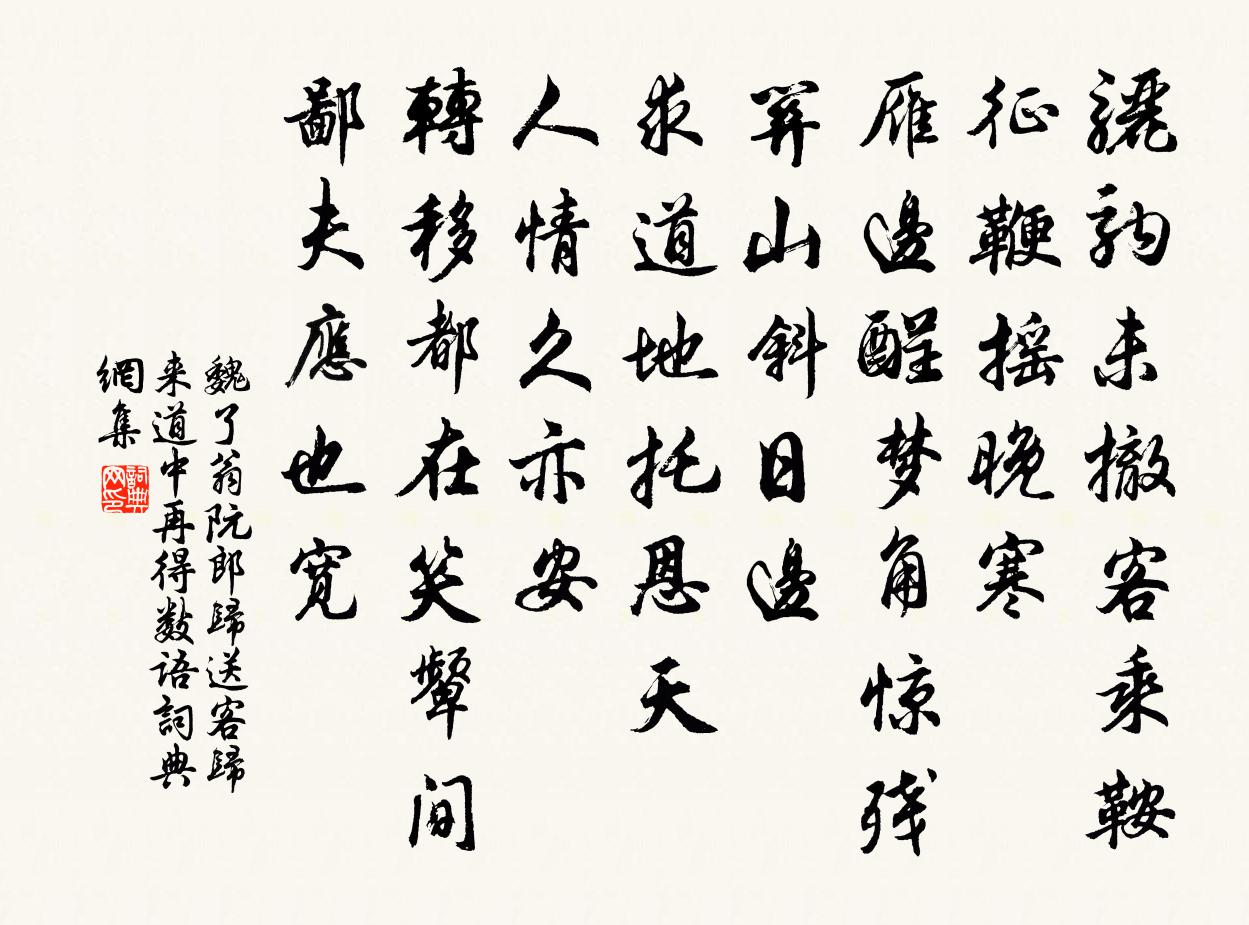 驪駒未撤客乘鞍
征鞭摇晚寒
雁邊醒梦角惊残
笄山斜日邊
求道地托恩天
人情久亦安
轉移都在笑顰间
鄙夫應也宽
魏了翁阮郎歸送客歸
来道中再得数语詞典
網集
詞典网印